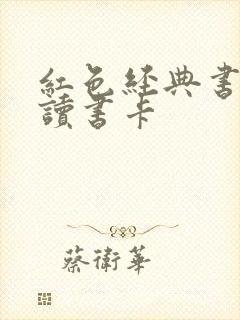 紅色經典書
讀書卡
蔡衛華